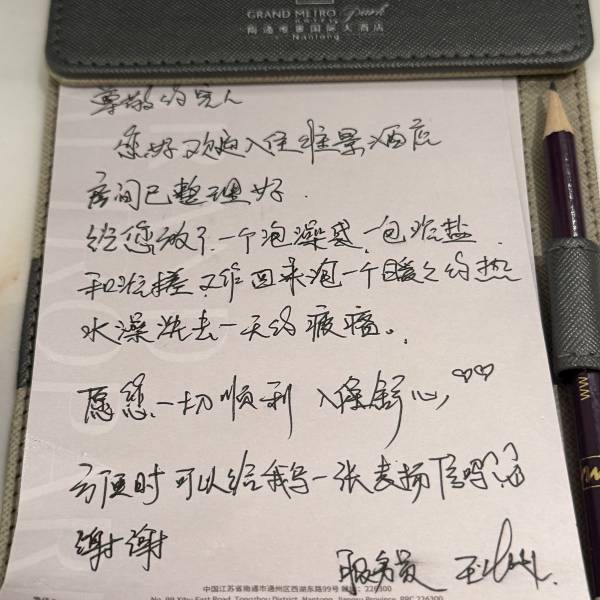 GRAND METRO park
HOTELS
南通维景国际大酒店
Nantong
尊敬的客人
您好欢迎入住维景酒店
房间已整理好.
给您放了一个泡澡袋一包浴盐
和浴搓工作回来泡一个暖之的热
水澡洗去一天的疲痛。
愿您一切顺利 入住舒心♡♡
方便时可以给我写一张表扬信吗
谢谢
服务员 王
中国江苏省南通市通州区西湖东路99号 邮编：226300
No. 99 Xihu East Road, Tongzhou District, Nantong, Jiangsu Province, PRC 226300